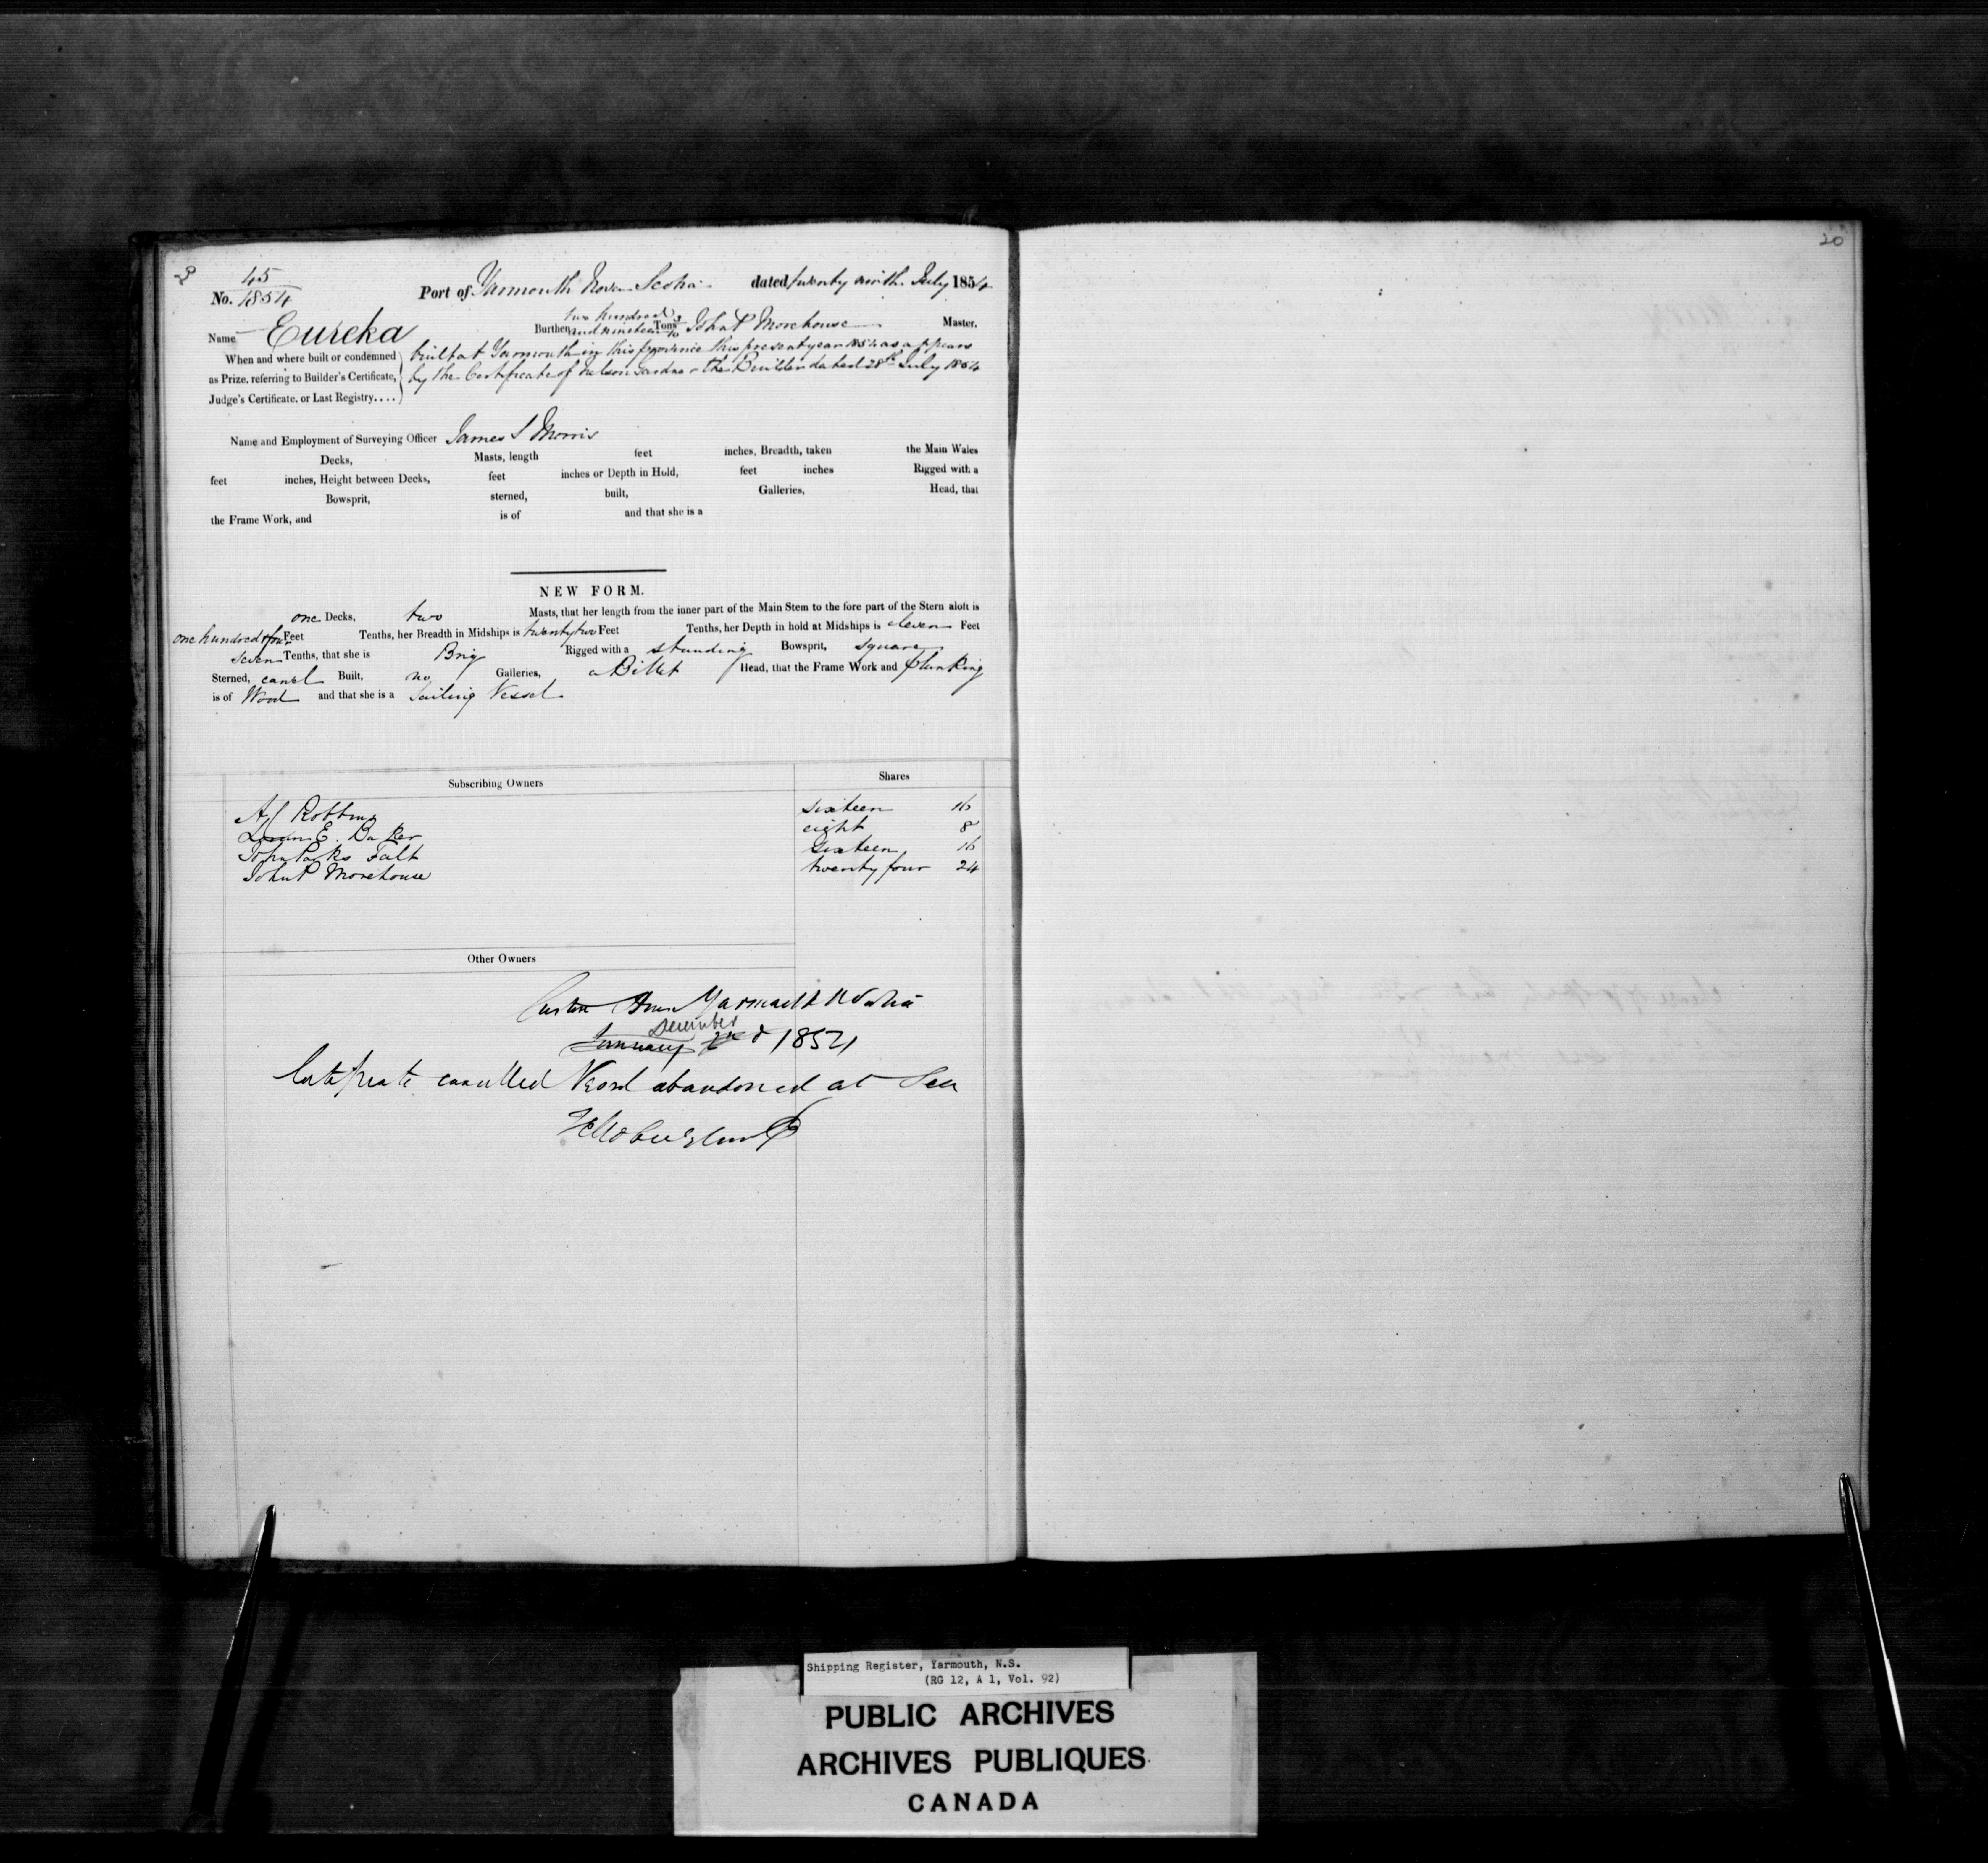 45
No. 1854
Port of Yarmouth Nova Scotia dated twenty ninth July 1854
Name Eureka Burthen two hundred and nineteen Tons John P Morehouse Master.
When and where built or condemned as Prize, referring to Builder's Certificate, Judge's Certificate, or Last Registry....
built at Yarmouth in this province this present year 1854 as appears
by the Certificate of Nelson Gardner the Builder dated 28th July 1854
Name and Employment of Surveying Officer James S Morris
Decks, Masts, length feet inches, Breadth, taken the Main Wales
feet inches, Height between Decks, feet inches or Depth in Hold, feet inches Rigged with a
Bowsprit, sterned, built, Galleries, Head, that
the Frame Work, and is of and that she is a
NEW FORM.
one Decks, two Masts, that her length from the inner part of the Main Stem to the fore part of the Stern aloft is
one hundred Feet Tenths, her Breadth in Midships is twenty two Feet Tenths, her Depth in hold at Midships is eleven Feet
seven Tenths, that she is Brig Rigged with a standing Bowsprit, square
Sterned, carvel Built, no Galleries, a Billet Head, that the Frame Work and planking
is of Wood and that she is a Sailing Vessel
Subscribing Owners Shares
A Robbins sixteen 16
E. Baker eight 8
John Parks Talt sixteen 16
John P Morehouse twenty four 24
Other Owners
Custom House Yarmouth N Scotia
December
January 2nd 1854
Certificate cancelled Vessel abandoned at Sea
20
Shipping Register, Yarmouth, N.S.
(RG 12, A 1, Vol. 92)
PUBLIC ARCHIVES
ARCHIVES PUBLIQUES
CANADA